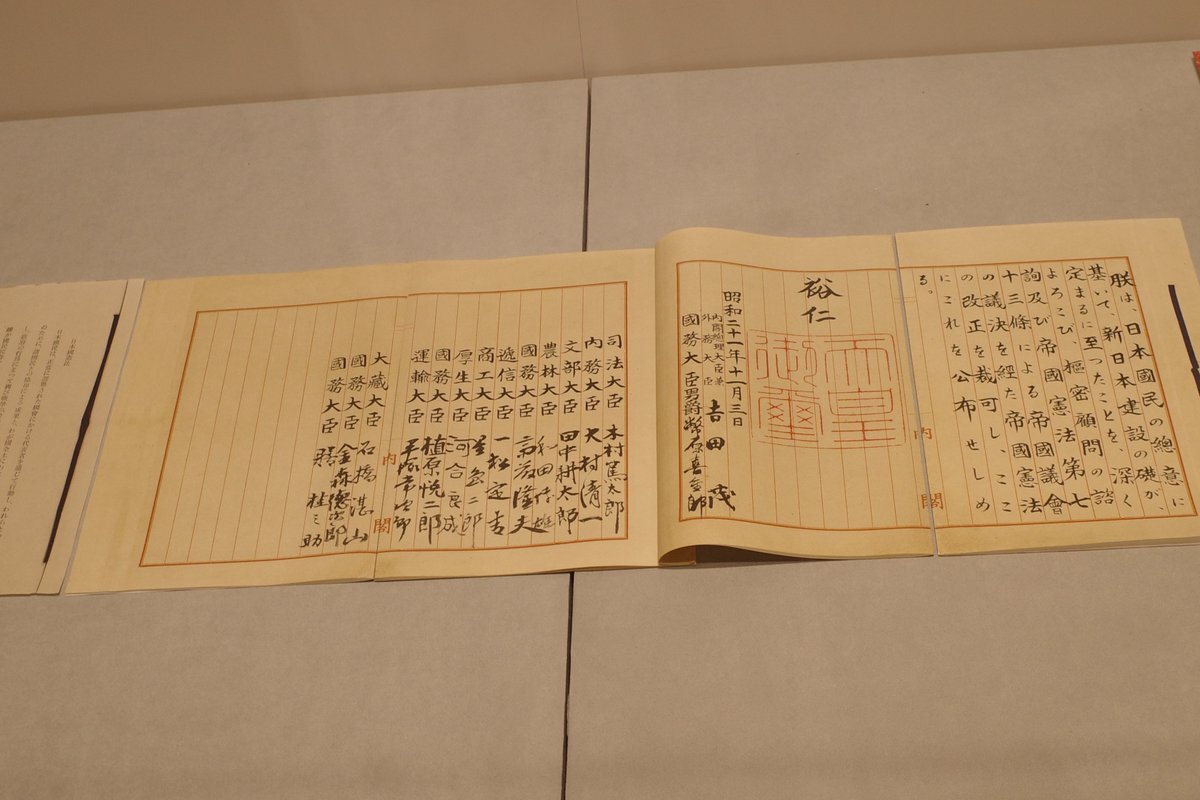 朕は、日本國民の總意に
基いて、新日本建設の礎が、
定まるに至つたことを、深く
よろこび、樞密顧問の諮
詢及び帝國憲法第七
十三條による帝國議會
の議決を經た帝國憲法
の改正を裁可し、ここ
にこれを公布せしめ
る。
内閣
裕仁
天皇御璽
昭和二十一年十一月三日
内閣總理大臣兼
外務大臣 吉田茂
國務大臣男爵幣原喜重郎
司法大臣 木村篤太郎
内務大臣 大村清一
文部大臣 田中耕太郎
農林大臣 和田博雄
國務大臣 斎藤隆夫
遞信大臣 一松定吉
商工大臣 星島二郎
厚生大臣 河合良成
國務大臣 植原悦二郎
運輸大臣 平塚常次郎
内閣
大藏大臣 石橋湛山
國務大臣 金森德次郎
國務大臣 膳桂之助
日本國憲法